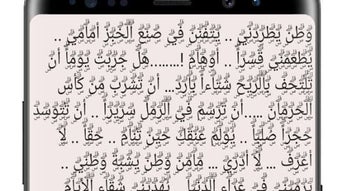 وَطَنٌ يُطَارِدُنِي .. يَتَفَنَّنُ فِي صُنْعِ الْخُبْزِ أَمَامِي ..
يُطْعِمُنِي قَسْراً .. أَوْهَامْ !........هَلْ جَرَّبْتَ يَوْماً أَنْ
تَلْتَحِفَ بِالرِّيحِ شِتَاءاً بَارِد... أَنْ تَشْرَبَ مِنْ كَأْسِ
الْحِرْمَانِ ....أَنْ تَرْسُمَ فِي الرَّمْلِ سَرِيراً... أَنْ تَتَوَسَّدَ
حَجَراً صَلْباً .. يُؤْلِمُ عُنُقَكَ حِينَ تَنَامْ .. حَقّاً .. لَا
أَعْرِفُ ... لَا أَدْرِي ... مَامِنْ وَطَنٍ يُشْبِهُ وَطَنِي ..
عَرَاءَ الدُّنْيَا شَقَاءُ الْأَيَّامْ